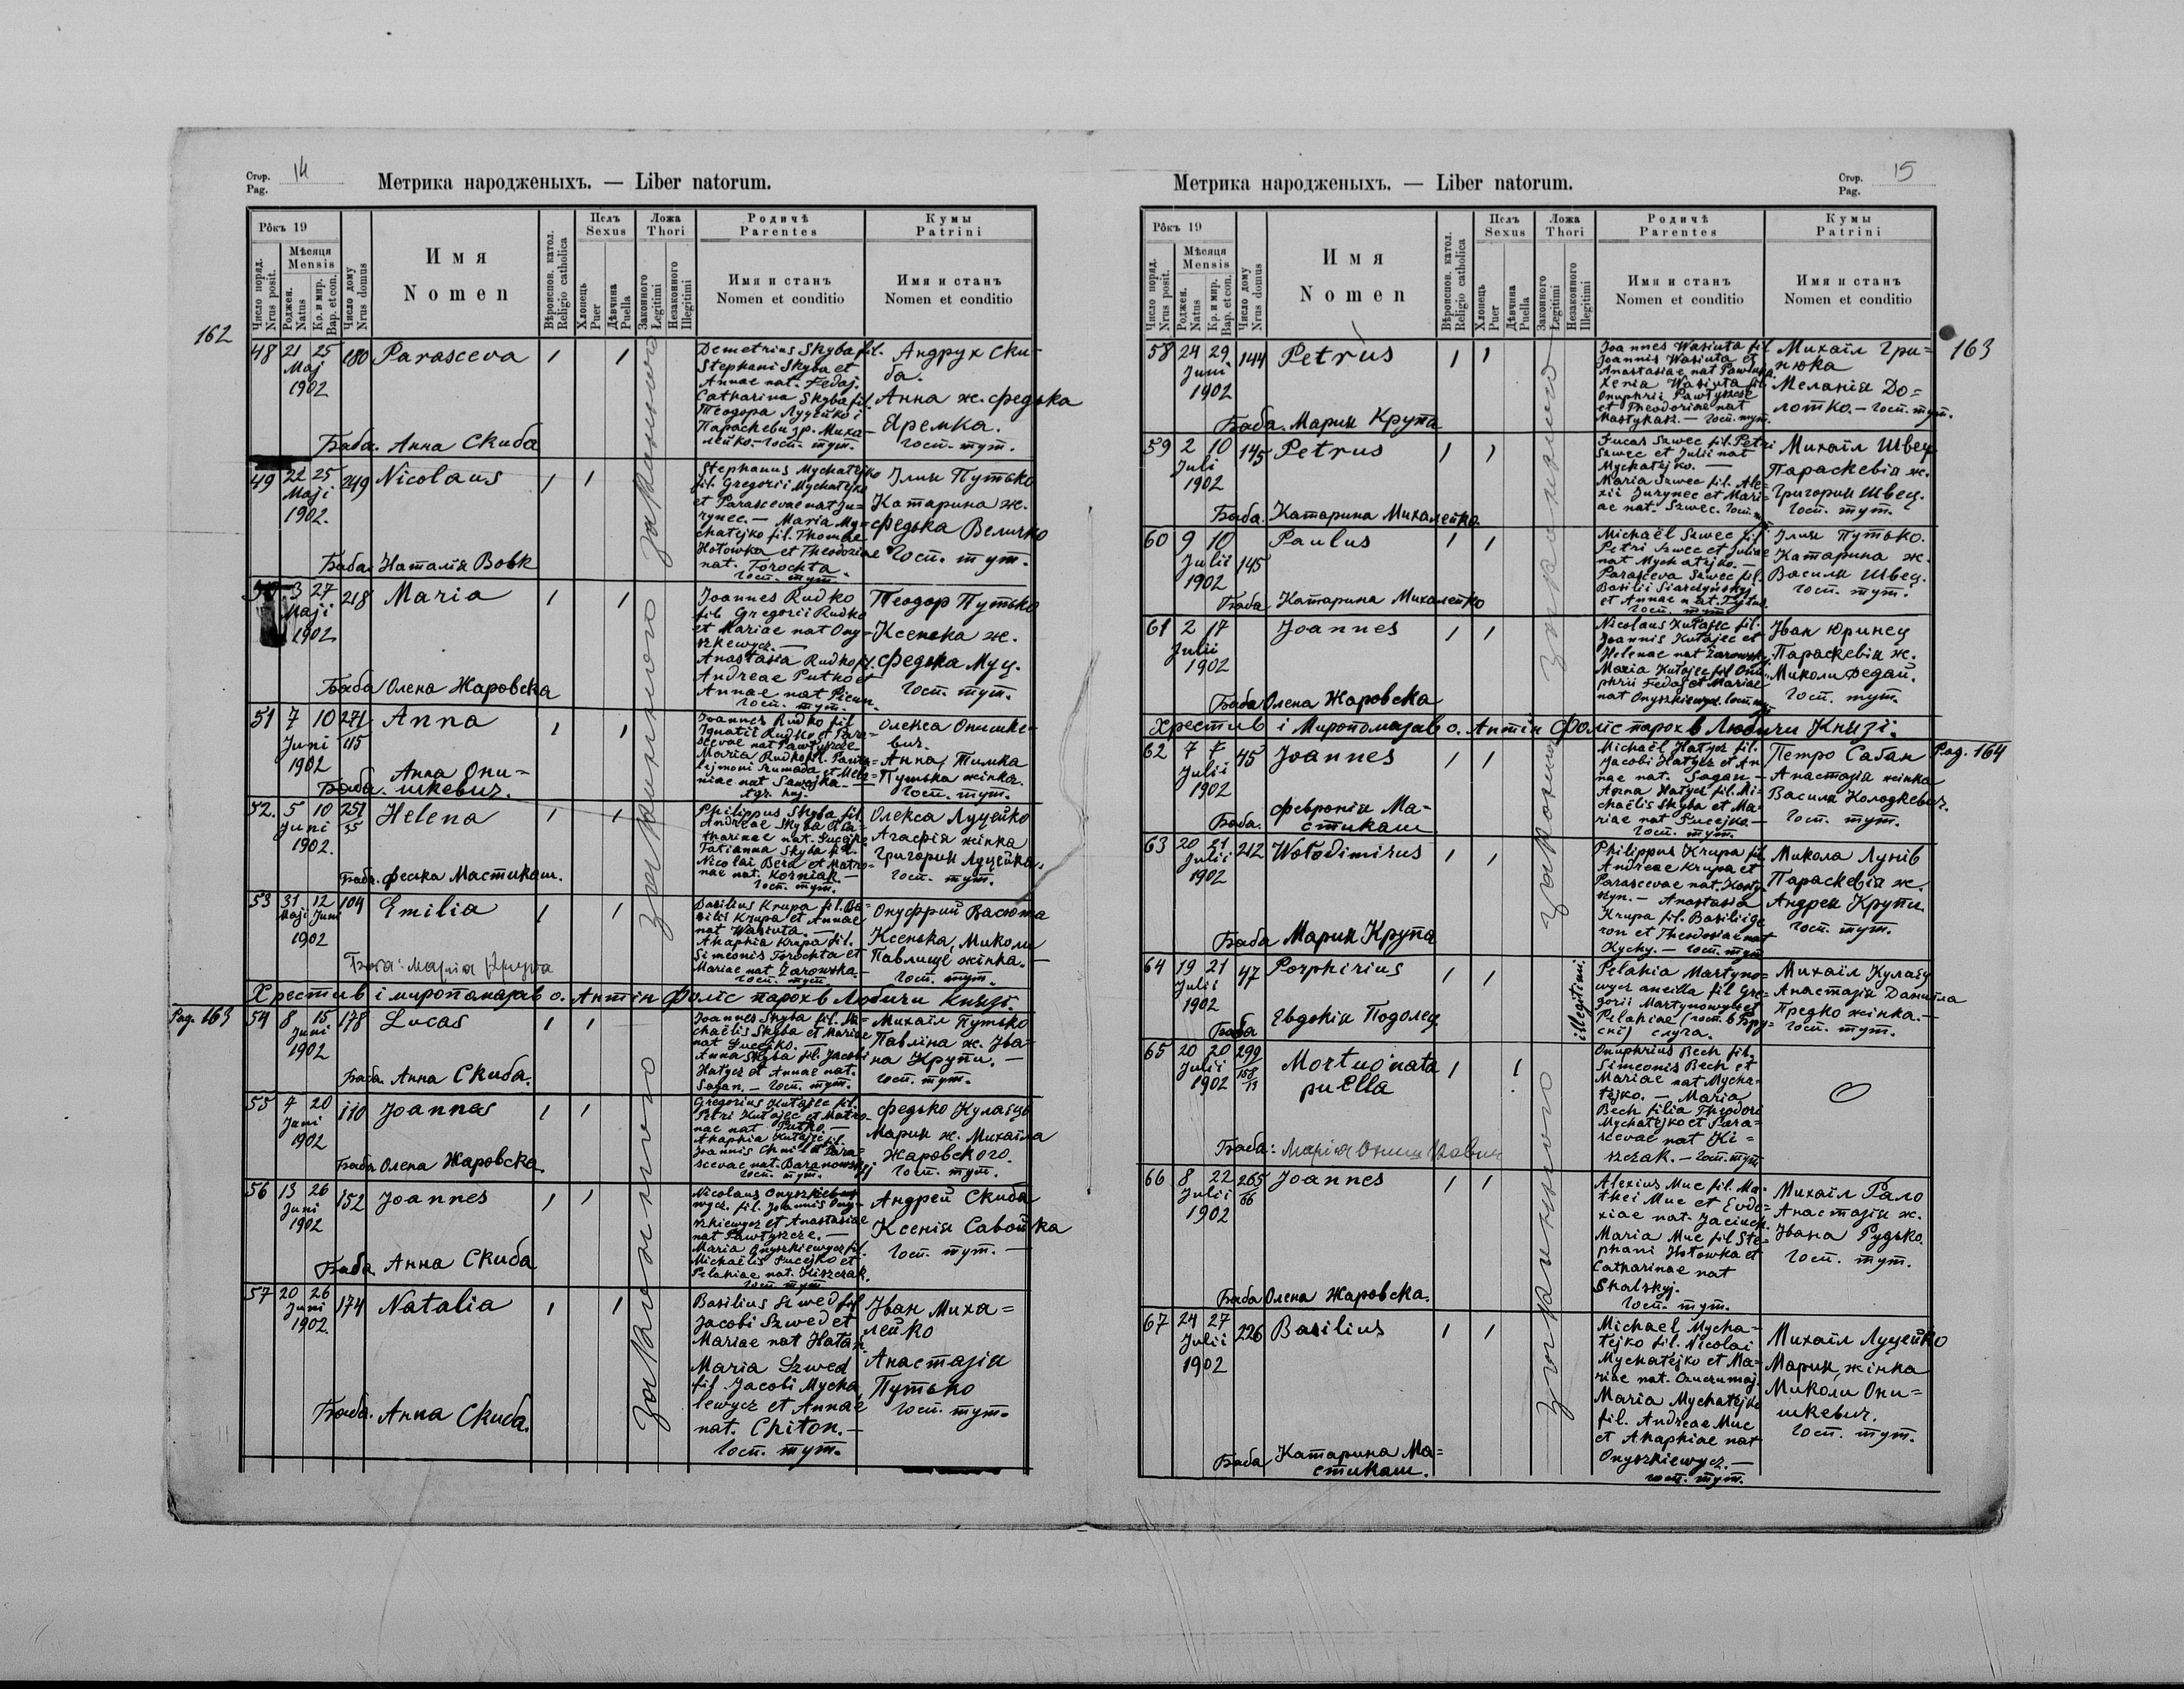 Стор.
Pag. 14
Метрика народженыхъ. — Liber natorum.
Рôкъ 19
Число поряд.
Nrus posit.
Мѣсяця
Mensis
Роджен.
Natus
Кр. и мир.
Bap. et con.
Число дому
Nrus domus
Имя
Nomen
Вѣроиспов. катол.
Religio catholica
Полъ
Sexus
Хлопець
Puer
Дѣвчина
Puella
Ложа
Thori
Законного
Legitimi
Незаконного
Illegitimi
Родичѣ
Parentes
Имя и станъ
Nomen et conditio
Кумы
Patrini
Имя и станъ
Nomen et conditio
162
законного
48 21 25 180 Parasceva
Maj
1902
Баба. Анна Скиба
Demetrius Skyba fil.
Stephani Skyba et
Annae nat. Fedaj.
Catharina Skyba fil.
Теодора Луцейко і
Параскеви зр. Миха-
лейко.- госп. тут.
Андрух Ски-
ба.
Анна ж. Федька
Яремка.
госп. тут.
49 22 25 249 Nicolaus
Maji
1902.
Баба Наталія Вовк
Stephanus Mychatejko
fil. Gregorii Mychatejko
et Parascevae nat Ju-
rynec. — Maria My-
chatejko fil. Thomae
Hotowka et Theodoziae
nat. Torochta.
госп. тут.
Ілия Путько
Катарина ж.
Федька Величко
Госп. тут.
3 27 218 Maria
Maji
1902.
Баба Олена Жаровска
Joannes Rudko
fil. Gregorii Rudko
et Mariae nat Ony-
szkewycz. —
Anastasia Rudko fil.
Andreae Putko et
Annae nat Picun.
госп. тут.
Теодор Путько
Ксенька ж.
Федька Муц.
Госп. тут.
51 7 10 271 Anna
Juni 115
1902
Баба. Анна Они-
шкевич.
Joannes Rudko fil.
Ignatii Rudko et Para-
scevae nat Pawtyszcze
Maria Rudko fil. Pante-
lejmoni Szumada et Mela-
niae nat Sawojka. —
agr. huj.
Олекса Онишке-
вич.
Анна, Тимка
Путька жінка.
Госп. тут.
52. 5 10 251 Helena
Juni 55
1902.
Баба. Феська Мастикаш.
Philippus Skyba fil.
Andreae Skyba et Ca-
tharinae nat. Lucejko
Tatianna Skyba fil.
Nicolai Bera et Matro-
nae nat. Korniak. —
госп. тут.
Олекса Луцейко
Агафія жінка
Григория Луцейка.
Госп. тут.
53 31 12 104 Emilia
Maji Juni
1902
Баба: Марія Крупа
Basilius Krupa fil. Ba-
silii Krupa et Annae
nat Wasiuta. —
Ahaphia Krupa fil.
Simeonis Torochta et
Mariae nat Zarowska.
госп. тут.
Онуфрий Васюта
Ксенька, Миколи
Павлище жінка. —
Госп. тут.
Хрестив і миропомазав о. Антін Фоліс парох в Любичи Князі.
Pag. 163
законного
54 8 15 178 Lucas
Juni
1902
Баба. Анна Скиба.
Joannes Skyba fil. Mi-
chaëlis Skyba et Mariae
nat Lucejko. —
Anna Skyba fil. Jacobi
Hatycz et Annae nat.
Sagan. — Госп. тут.
Михаїл Путько
Павліна ж. Іва-
на Крупи. —
Госп. тут.
55 4 20 110 Joannes
Juni
1902
Баба Олена Жаровска
Gregorius Kutajec fil.
Petri Kutajec et Matro-
nae nat Putko. —
Ahaphia Kutajec fil.
Joannis Chmil et Para-
scevae nat. Baranowskyj
госп. тут.
Федько Кулаєць
Мария ж. Михаїла
Жаровского.
Госп. тут.
56 13 26 152 Joannes
Juni
1902
Баба Анна Скиба
Nicolaus Onyszkie-
wycz. fil. Joannis Ony-
szkiewycz et Anastasiae
nat Pawtyszcze. —
Maria Onyszkiewycz fil.
Michaëlis Lucejko et
Pelahiae nat. Kiszczak.
госп. тут.
Андрей Скиба
Ксенія Савойка
Госп. тут. —
57 20 26 174 Natalia
Juni
1902.
Баба. Анна Скиба.
Basilius Szwed fil
Jacobi Szwed et
Mariae nat Hatan
Maria Szwed
fil. Jacobi Mycha-
lewycz et Annae
nat. Chiton. —
Госп. тут.
Іван Миха=
лейко
Анастазія
Путько
Госп. тут.
Метрика народженыхъ. — Liber natorum.
Стор.
Pag. 15
Рôкъ 19
Число поряд.
Nrus posit.
Мѣсяця
Mensis
Роджен.
Natus
Кр. и мир.
Bap. et con.
Число дому
Nrus domus
Имя
Nomen
Вѣроиспов. катол.
Religio catholica
Полъ
Sexus
Хлопець
Puer
Дѣвчина
Puella
Ложа
Thori
Законного
Legitimi
Незаконного
Illegitimi
Родичѣ
Parentes
Имя и станъ
Nomen et conditio
Кумы
Patrini
Имя и станъ
Nomen et conditio
163
законного
58 24 29 144 Petrus
Juni
1902
Баба. Мария Крупа
Joannes Wasiuta fil
Joannis Wasiuta et
Anastasiae nat Pawluka.
Xenia Wasiuta fil.
Onuphrii Pawtyszcze
et Theodoriae nat
Mastykasz. — Госп. тут.
Михаїл Гри=
нюка
Меланія До=
лотко. — Госп. тут.
59 2 10 145 Petrus
Juli
1902
Баба. Катарина Михалейко
Lucas Szwec fil. Petri
Szwec et Julii nat
Mychatejko. —
Maria Szwec fil. Ale-
xii Jurynec et Mari-
ae nat. Szwec. Госп.
Михаїл Швец
Параскевія ж.
Григория Швец.
Госп. тут.
60 9 10 Paulus
Julii 145
1902
Баба Катарина Михалейко
Michaël Szwec fil
Petri Szwec et Juliae
nat Mychatejko. —
Parasceva Szwec fil.
Basilii Siardynskyj
et Annae nat.
госп. тут
Ілия Путько.
Катарина ж.
Василя Швец.
Госп. тут.
61 2 17 Joannes
Julii
1902
Баба Олена Жаровска
Nicolaus Kutajec fil.
Joannis Kutajec et
Helenae nat Zarowsky.
Maria Kutajec fil Onu-
phrii Fedaj et Mariae
nat Onyszkiewycz. госп.
Іван Юринец
Параскевія ж.
Миколи Федай.
Госп. тут.
Хрестив і Миропомазав о. Антін Фоліс парох в Любичи Князі.
законного
62 7 45 Joannes
Julii
1902
Баба. Февронія Ма-
стикаш
Michaël Hatycz fil.
Jacobi Hatycz et An
nae nat. Sagan —
Anna Hatycz fil. Mi-
chaëlis Skyba et Ma-
riae nat Lucejko. —
Госп. тут.
Петро Сабан
Анастазія жінка
Василя Колодкевич.
Госп. тут.
Pag. 164
63 20 21 212 Wołodimirus
Julii
1902
Баба Мария Крупа
Philippus Krupa fil
Andreae Krupa et
Parascevae nat. Kosty-
szyn. — Anastasia
Krupa fil. Basilii Ge
ron et Theodosiae nat
Kychy. — Госп. тут
Микола Лунів
Параскевія ж.
Андрея Крупи
Госп. тут.
64 19 21 47 Porphirius
Julii
1902
Баба Євдокія Подолец
illegitimi.
Pelahia Martyno-
wycz ancilla fil Gre-
gorii Martynowycz et
Pelahiae (госп. в Бру-
сні) слуга.
Михаїл Кулаєц
Анастазія Данила
Предко жінка. —
Госп. тут.
законного
65 20 20 299 Mortuo nata
Julii 158
1902 13 puella
Баба: Марія Онишкевич
Onuphrius Bech fil.
Simeonis Bech et
Mariae nat Mycha-
tejko. — Maria
Bech filia Theodori
Mychatejko et Para-
scevae nat Ki=
szczak. — Госп. тут
66 8 22 265 Joannes
Julii 66
1902
Баба Олена Жаровска.
Alexius Muc fil. Ma-
thei Muc et Evdo-
xiae nat. Jaciuch.
Maria Muc fil Ste-
phani Hotowka et
Catharinae nat
Skalskyj.
Госп. тут.
Михаїл Рало
Анастазія ж.
Івана Рудько.
Госп. тут.
67 24 27 226 Basilius
Julii
1902
Баба Катарина Ма=
стикаш.
Michael Mycha-
tejko fil. Nicolai
Mychatejko et Ma-
riae nat. Czuczumaj.
Maria Mychatejko
fil. Andreae Muc
et Ahaphiae nat
Onyszkiewycz. —
госп. тут.
Михаїл Луцейко
Мария, жінка
Миколи Они=
шкевич.
Госп. тут.